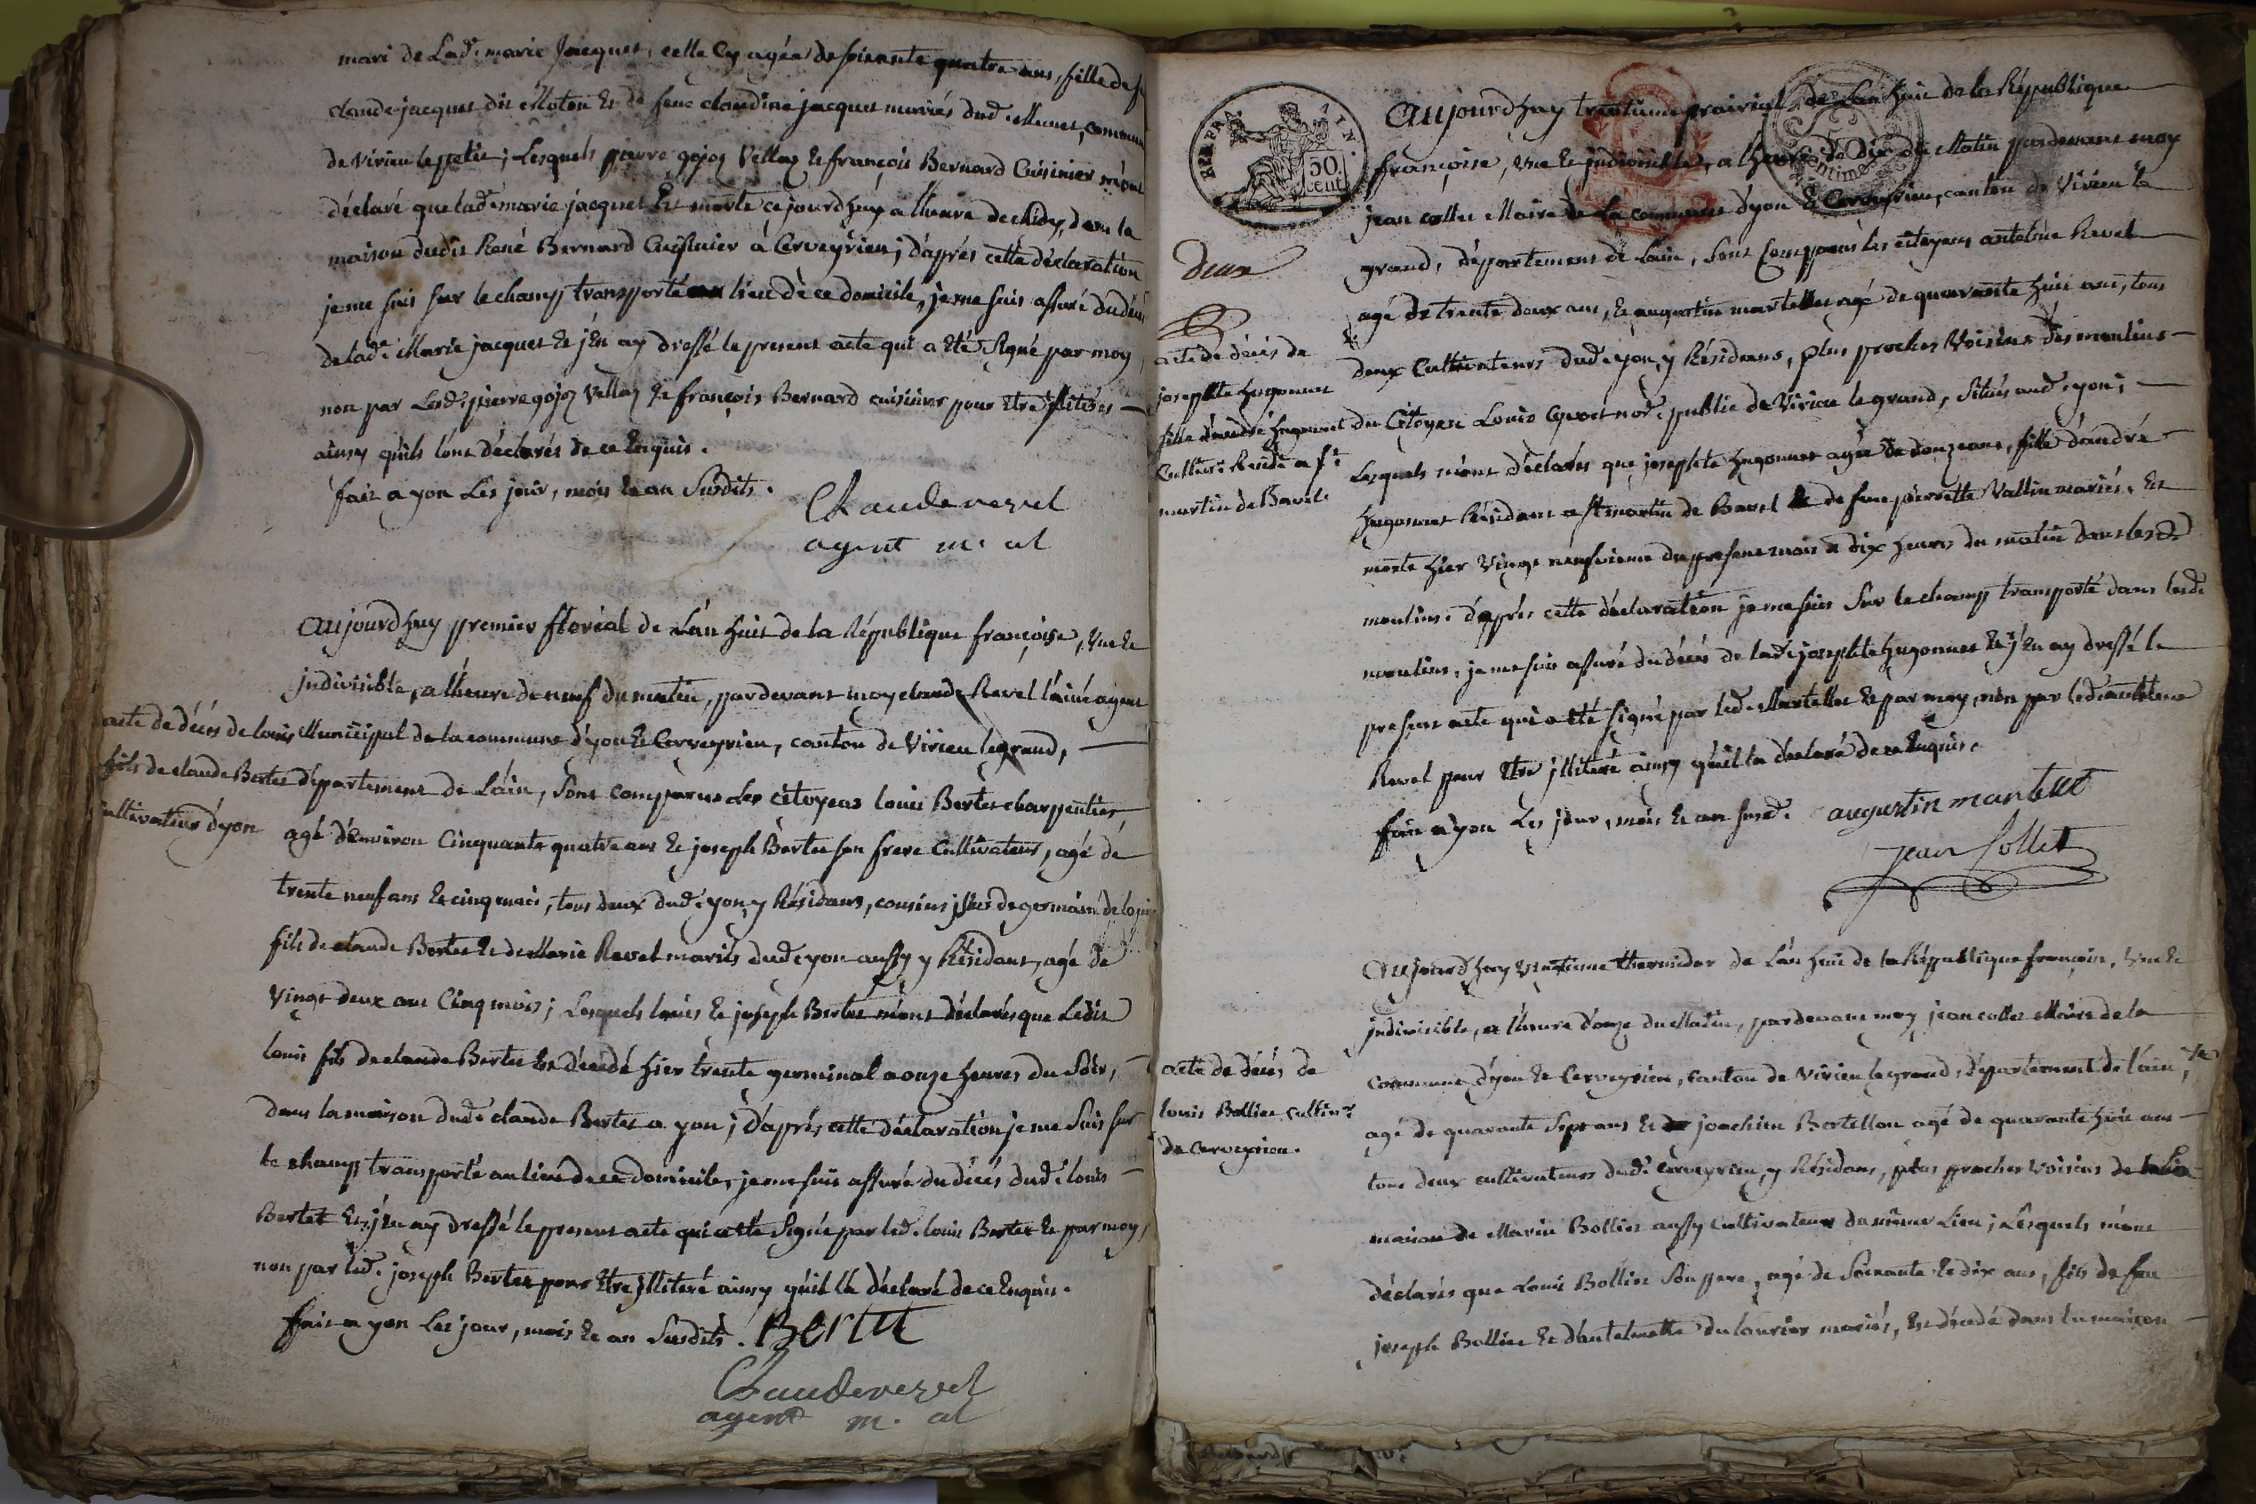 mari de lad.e marie Jacquet, celle cy agée de soixante quatre ans, fille de f
claude jacquet dit Moton Et de feue claudine jacquet mariés dud. Munet, commun
de virieu le petit; Lesquels pierre gojoz Vellaz Et françois Bernard Cuisinier m'ont
déclaré que lad.e marie jacquet Est morte ce jourd'huy a lheure de Midy, dans la
maison dudit René Bernard Cuisinier à Cerveyrieu; d'après cette déclaration
je me suis sur le champ transporté au lieu de ce domicile, je me suis assuré du déc
de lad.e Marie jacquet Et j'En ay dressé le present acte qui a Eté signé par moy,
non par lesd. pierre gojoz Vellaz Et françois Bernard cuisinier pour Etre illitérés
ainsy qu'ils l'ont déclarés de ce Enquis.
fait a yon Les jour, mois Et an Susdits.
Claude revel
agent m. al
Aujourd'huy premier floréal de L'an huit de la République françoise, Une Et
indivisible, a l'heure de neuf du matin, pardevant moy claude Revel l'ainé agent
acte de décés de louis
Municipal de la commune d'yon Et Cerveyrieu, canton de Virieu le grand,
fils de claude Bertet
département de L'ain, sont comparus Les citoyens louis Bertet charpentier,
cultivateur d'yon
agé d'Environ Cinquante quatre ans Et joseph Bertet son frere Cultivateur, agé de
trente neuf ans Et cinq mois, tous deux dud. yon, y Résidans, cousins issus de germain de louis
fils de claude Bertet Et de Marie Revel mariés dud. yon aussy y Résidant, agé de
vingt deux ans Cinq mois; Lesquels louis Et joseph Bertet m'ont déclarés que Ledit
louis fils de claude Bertet Est décédé hier trente germinal a onze heures du Soir,
dans la maison dud. claude Bertet a yon; d'après cette déclaration je me Suis sur
le champ transporté au lieu de ce domicile, je me suis assuré du décés dud. louis
Bertet Et j'En ay dressé le present acte qui a été Signé par led. louis Bertet Et par moy,
non par led. joseph Bertet pour Etre illiteré ainsy qu'il l'a déclaré de ce Enquis.
fait a yon Les jour, mois Et an Susdits. Bertet
Claude revel
agent m. al
REP. FRA
50 cent
deux
Aujourd'huy trentieme prairial, de L'an huit de la République
françoise, Une Et indivisible, a l'heure de dix du Matin pardevant moy
jean collet Maire de La commune d'yon Et Cerveyrieu, canton de Virieu le
grand, département de l'ain, Sont Comparus les citoyens antelme Revel
agé de trente deux ans, Et augustin martellet agé de quarante huit ans, tous
acte de décés de
josephte hugonnet
fille d'andré hugonnet
Cultiv.r Resid.t a S.t
martin de Bavel.
deux Cultivateurs dud. yon, y Résidans, plus proches Voisins des moulins
du Citoyen Louis not.re public de Virieu le grand, Situés aud. yon;
Lesquels m'ont déclarés que josephte hugonnet agée de douze ans, fille d'andré
hugonnet Résidant a St martin de Bavel Et de feue pierrette Vallin mariés, Est
morte hier Vingt neufvieme du present mois a dix heures du matin dans lesd.
moulins. d'après cette déclaration je me suis Sur le champ transporté dans lesd.
moulins, je me suis assuré du décés de lad. josephte hugonnet Et j'En ay dressé le
present acte qui a Eté signé par led. Martellet Et par moy, non par led. antelme
Revel pour Etre illiteré ainsy qu'il l'a déclaré de ce Enquis.
fait a yon Les jour, mois Et an susd. augustin martellet
jean Collet
Aujourd'huy thermidor de L'an huit de la République françoise, Une Et
indivisible, a l'heure d'onze du Matin, pardevant moy jean collet Maire de la
commune d'yon Et Cerveyrieu, canton de Virieu le grand, département de l'ain,
acte de décés de
louis Bollier cultiv.r
de Cerveyrieu.
agé de quarante Sept ans Et joachim Bertellon agé de quarante huit ans
tous deux cultivateurs dud. Cerveyrieu, y Résidans, plus proches Voisins de la
maison de Marin Bollier aussy Cultivateur du même Lieu; Lesquels m'ont
déclarés que Louis Bollier Son pere, agé de Soixante Et dix ans, fils de feu
joseph Bollier Et d'antelmette du laurier mariés, Est décédé dans la maison